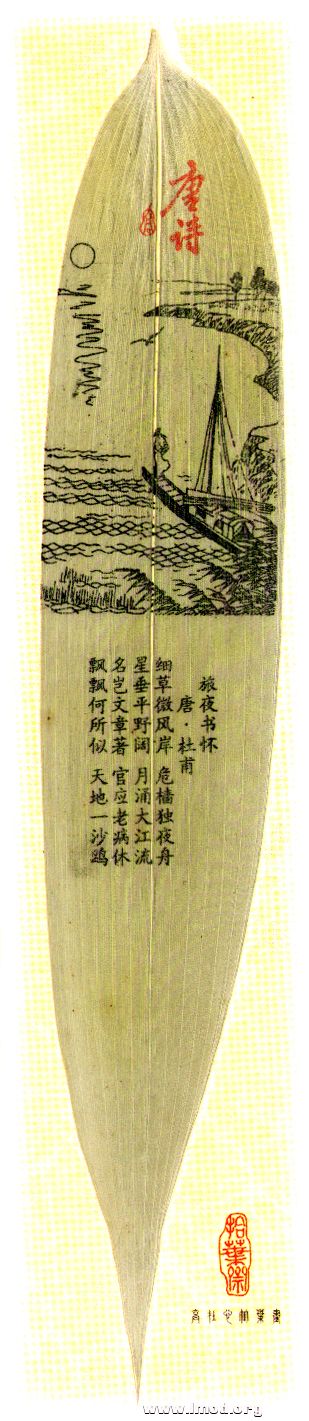 唐诗
旅夜书怀
唐·杜甫
细草微风岸 危樯独夜舟
星垂平野阔 月涌大江流
名岂文章著 官应老病休
飘飘何所似 天地一沙鸥
拾叶斋
www.lmod.org